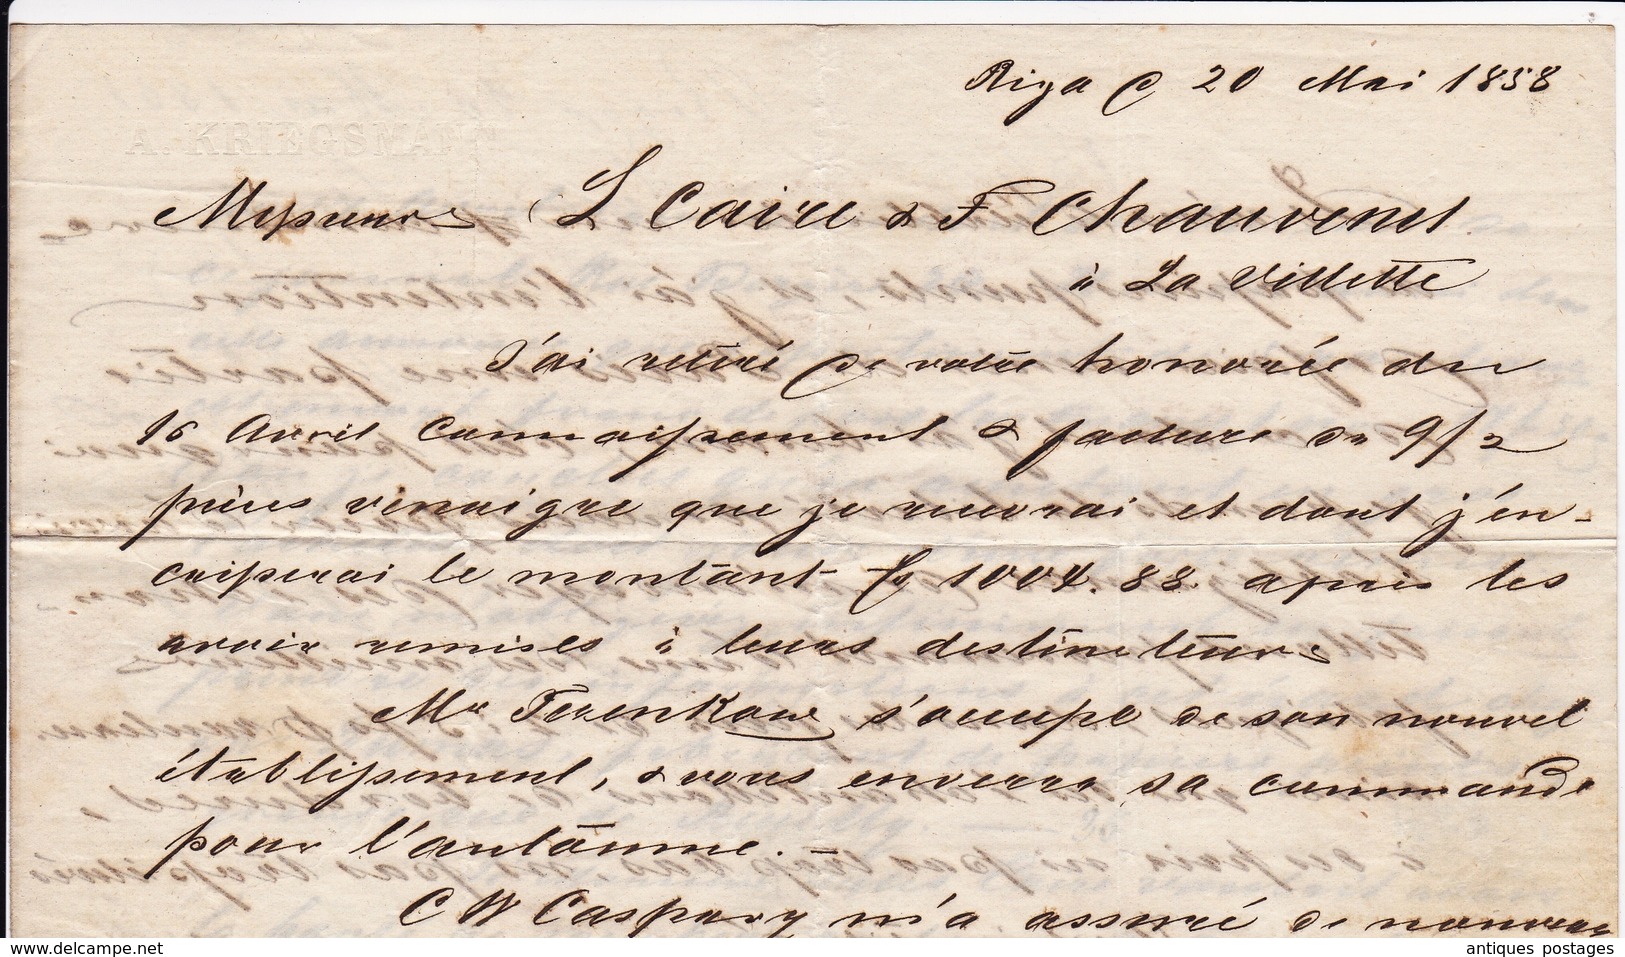 A. KRIEGSMANN
Riga 20 Mai 1858
Messieurs L Caire & F Chauvenet
à La Villette
J'ai retiré de votre honorée du
16 Avril connaissement & facture de 9/2
pièces vinaigre que je recevrai et dont j'en-
caisserai le montant 1004.88 après les
avoir remises à leurs destinateurs
Mr s'occupe de son nouvel
établissement, & vous enverra sa commande
pour l'automne. –
C W Caspary m'a assuré de nouveau
delcampe.net
antiques postages